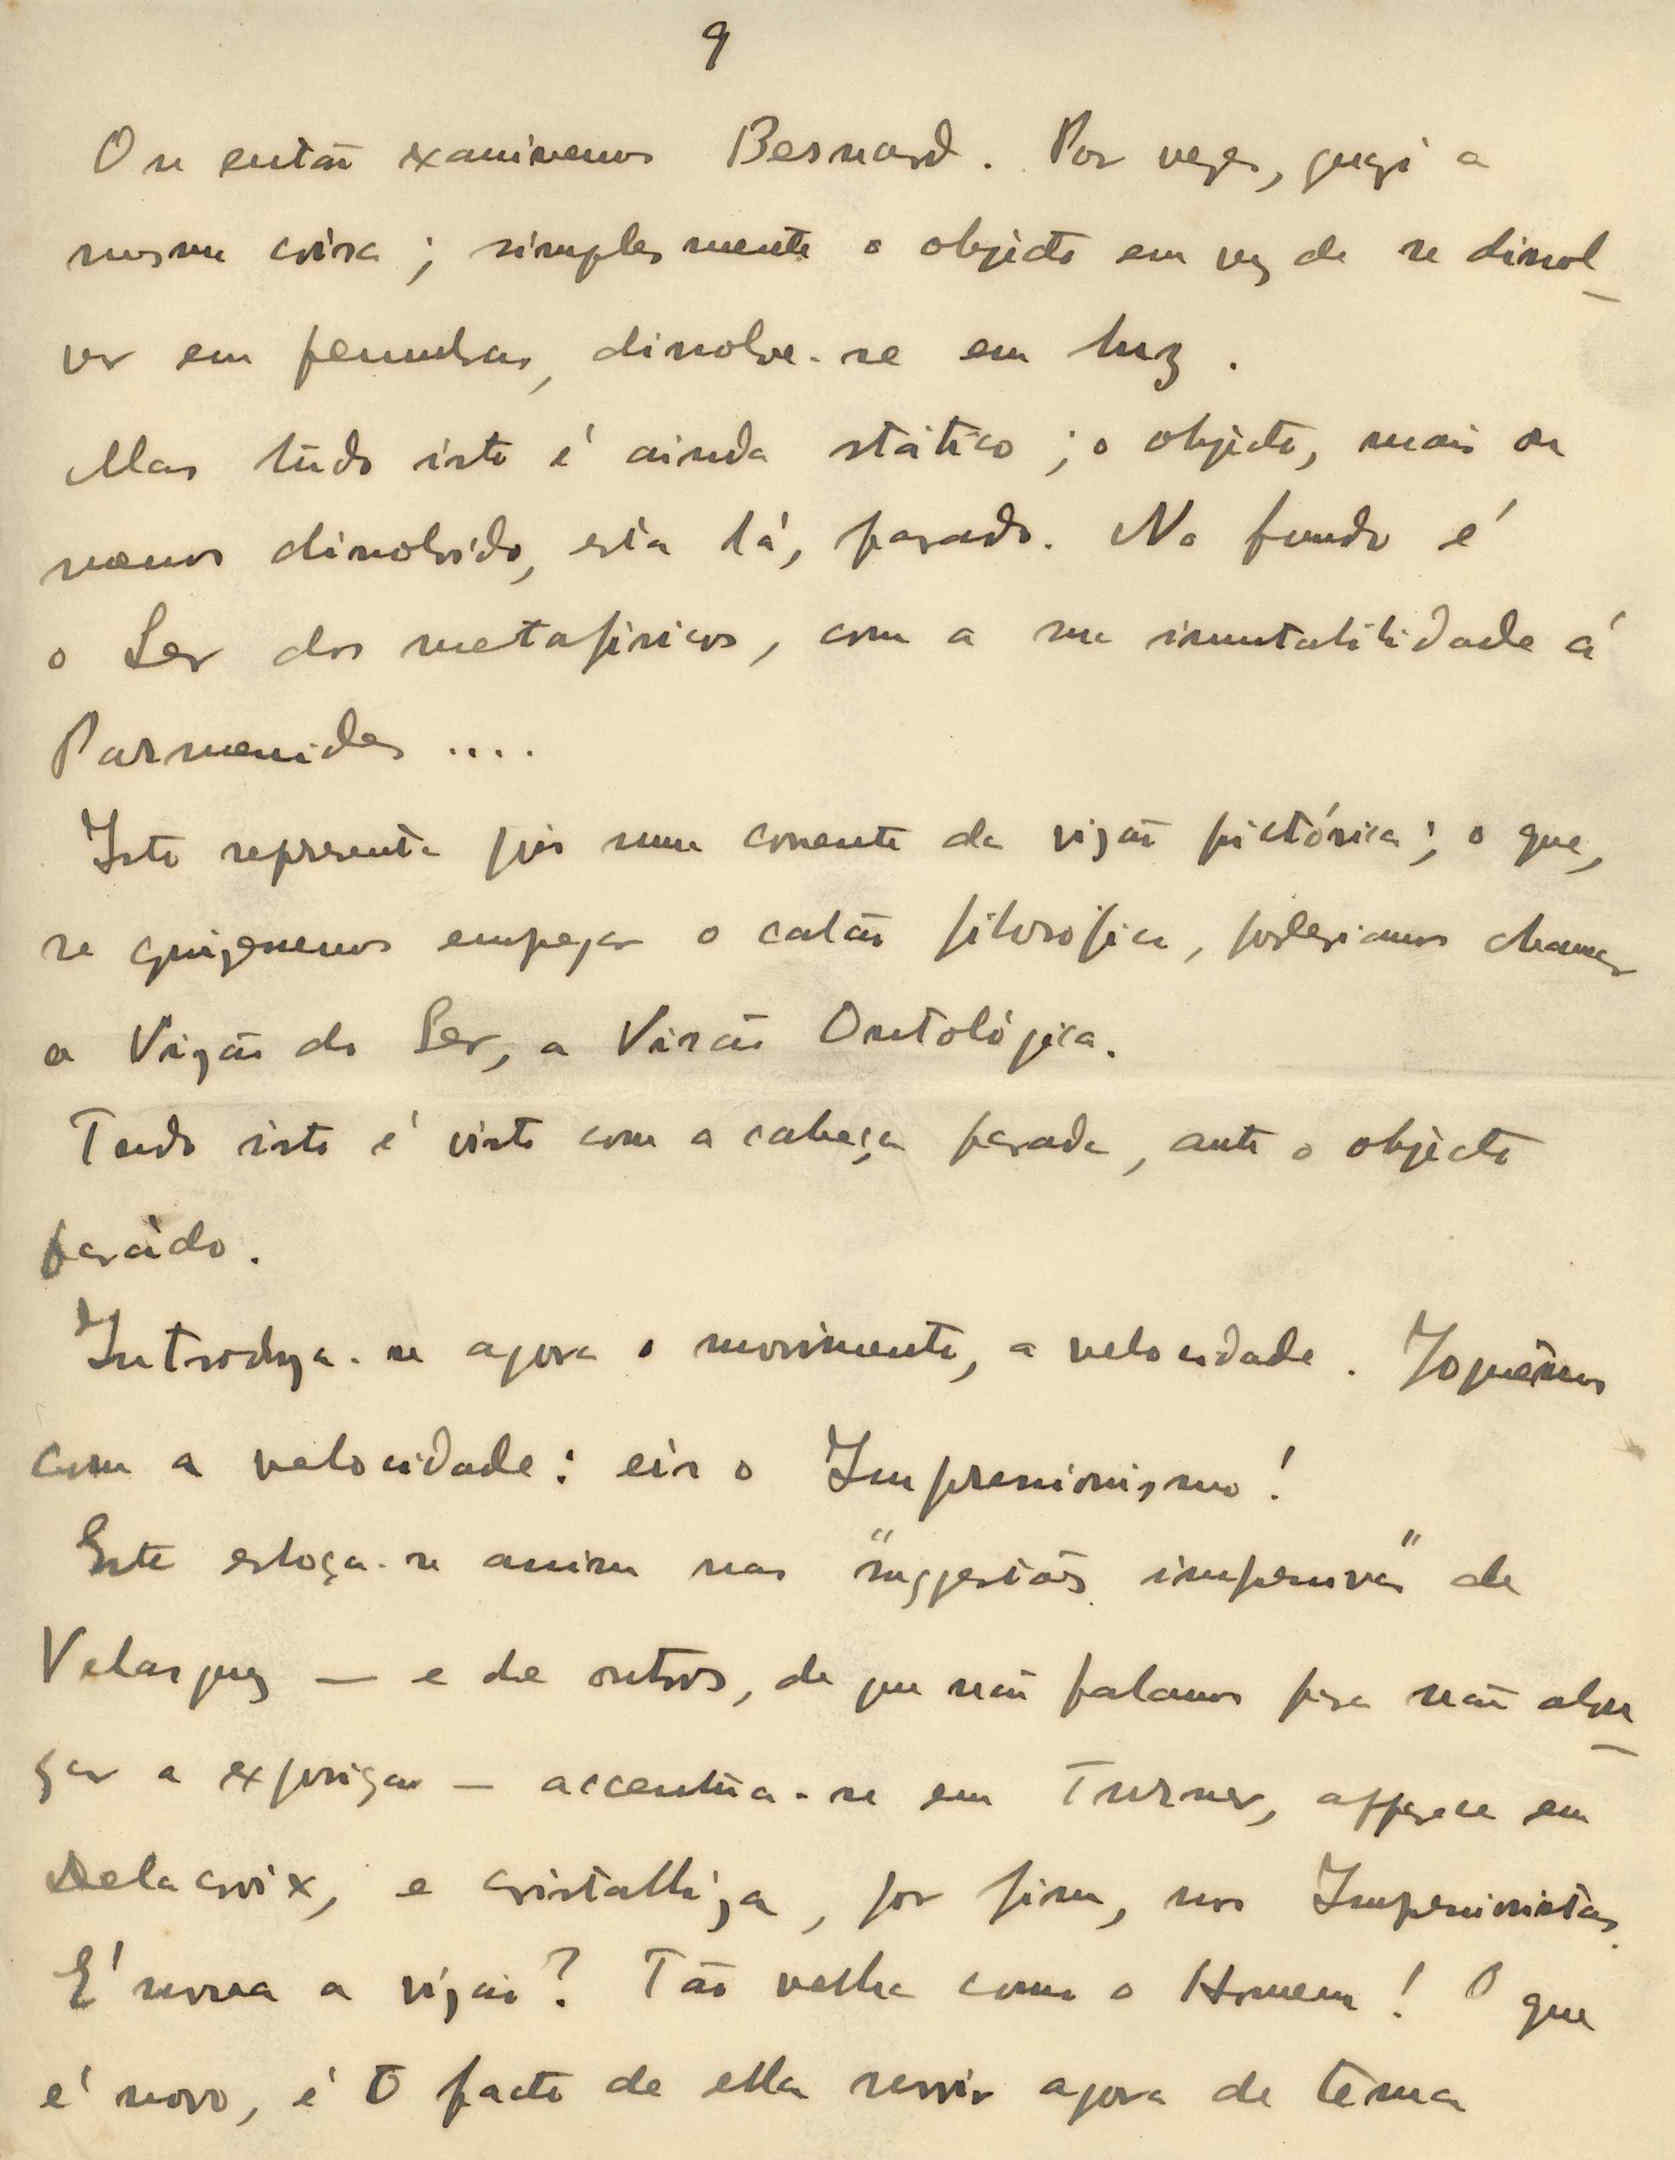 9
Ou então examinemos Besnard. Por vezes, quasi a
mesma coisa; simplesmente o objecto em vez de se dissol-
ver em penumbras, dissolve-se em luz.
Mas tudo isto é ainda stático; o objecto, mais ou
menos dissolvido, está lá, parado. No fundo é
o Ser dos metafisicos, com a sua imutabilidade á
Parmenides ....
Isto representa pois uma corrente da vizão pictórica; o que,
se quizessemos empregar o calão filosofico, poderiamos chamar
a Vizão do Ser, a Visão Ontológica.
Tudo isto é visto com a cabeça parada, ante o objecto
parádo.
Introduza-se agora o movimento, a velocidade. Joguêmos
com a velocidade: eis o Impressionismo!
Este esboça-se assim nas "suggestões impressivas" de
Velasquez — e de outros, de que não falamos para não alon-
gar a exposição — accentúa-se em Turner, apparece em
Delacroix, e cristalliza, por fim, nos Impressionistas.
É nova a vizão? Tão velha como o Homem! O que
é novo, é o facto de ella servir agora de tema